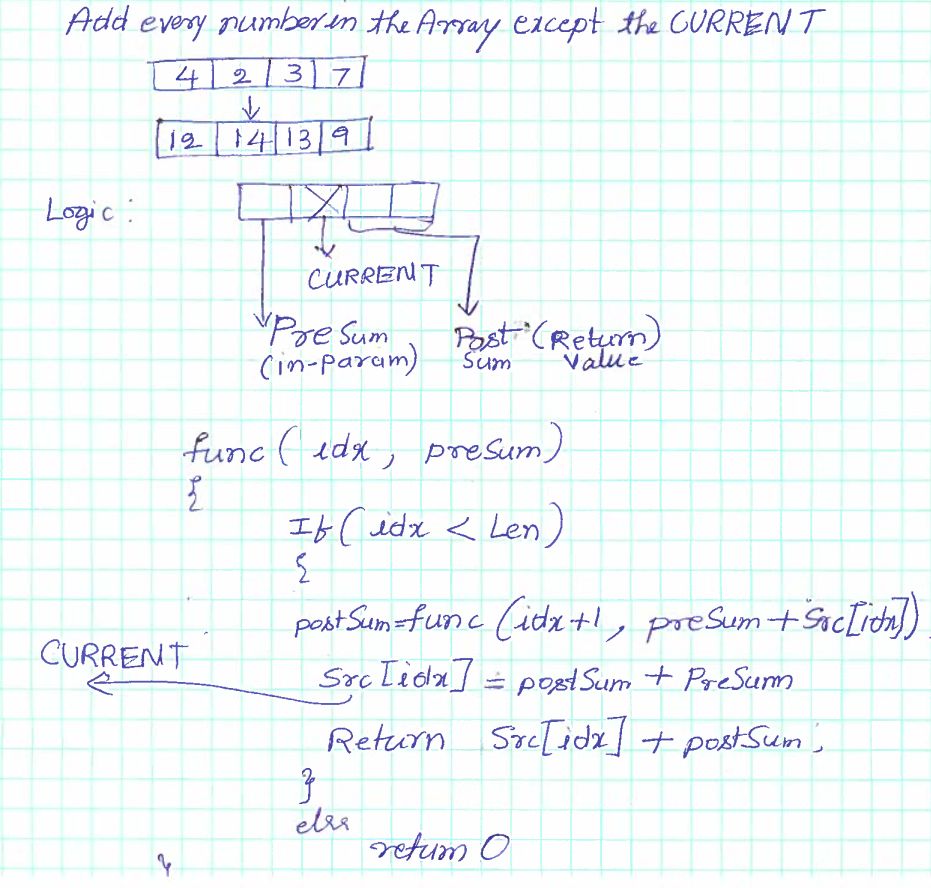 Add every number in the Array except the CURRENT
4 2 3 7
12 14 13 9
Logic :
CURRENT
PreSum Post (Return)
(in-param) Sum Value
func ( idx, preSum)
{
If ( idx < Len )
{
postSum=func (idx+1, preSum + Src[idx])
CURRENT
Src [idx] = postSum + PreSum
Return Src[idx] + postSum;
}
else
return 0
}